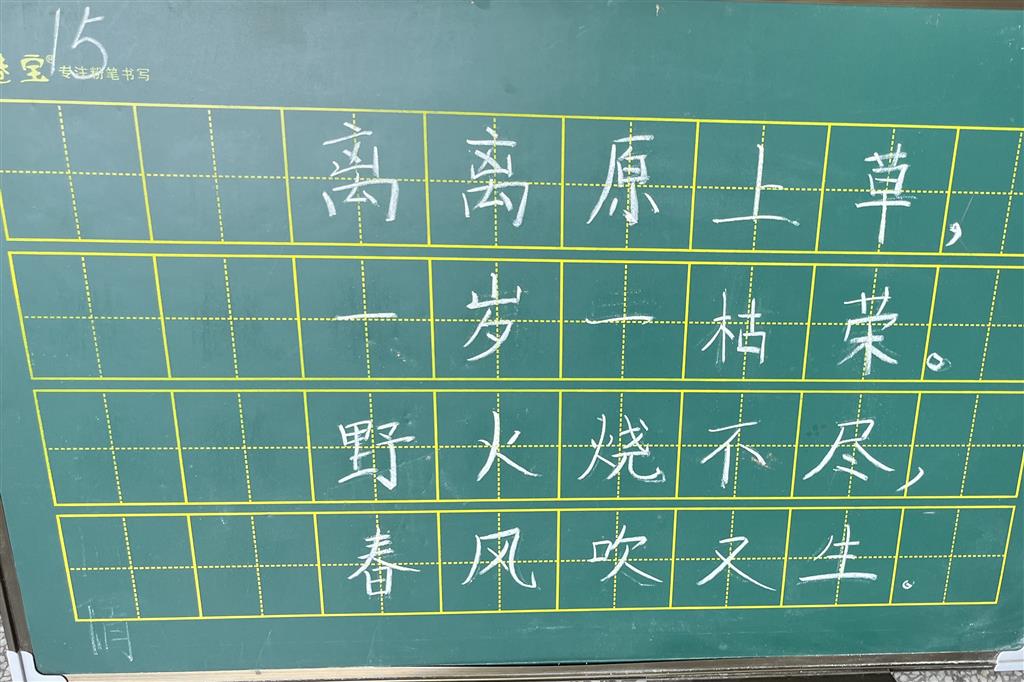 15
专注粉笔书写
离离原上草，
一岁一枯荣。
野火烧不尽，
春风吹又生。